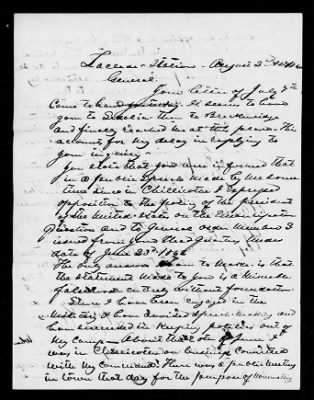 Laclede Station - August 3rd
General.
Your letter of July 7th
Came to hand It seems to have
gone to Sedalia then to Breckenridge
and finally reached me at this place - this
accounts for my delay in replying to
your inquiry -
You state that you were informed that
in a public speech made by me some
time since in Chillicothe I expressed
opposition to the policy of the president
of the United States on the Emancipation
Question and to General order Number 3
issued from your Head Quarters under
date of June 23rd
The only answer I have to make is that
the statement made to you is a Miserable
falsehood entirely without foundation
Since I have been engaged in the
Military I have avoided speech making and
have succeeded in keeping politics out of
my camp - About the of June I
was in Chillicothe on business connected
with my command. There was a public meeting
in town that day for the purpose of nominating